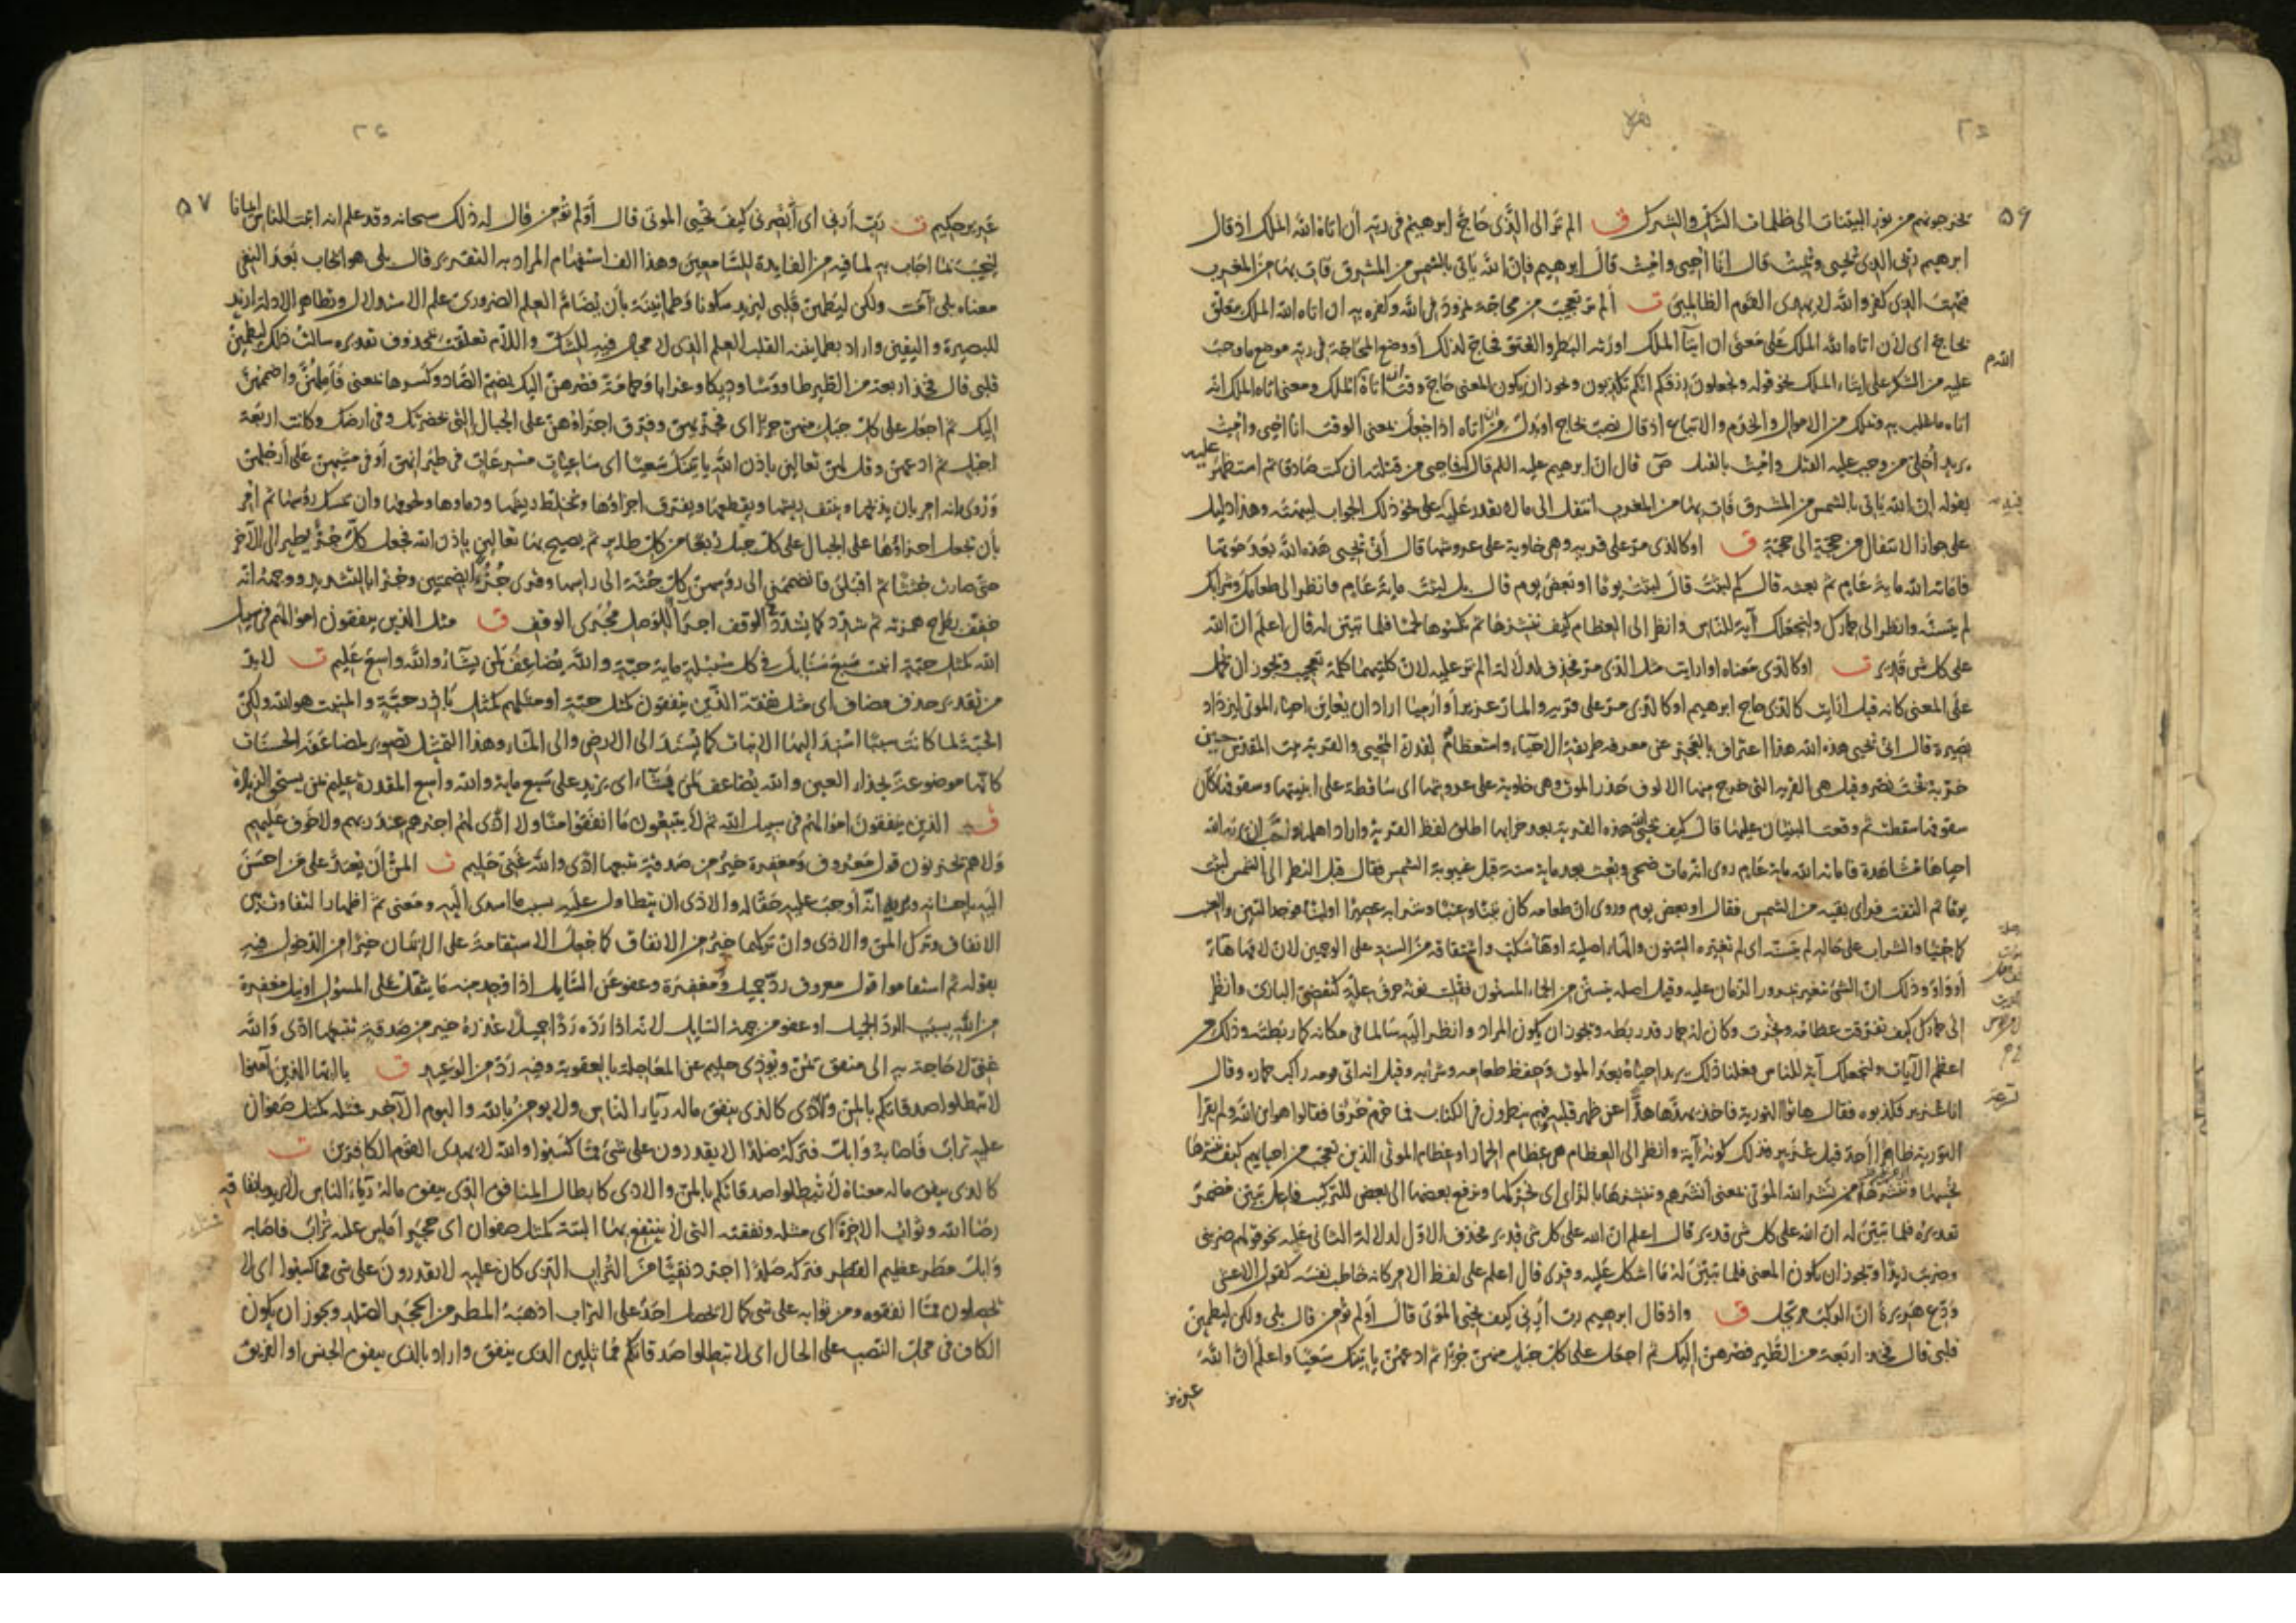 ٥٦
يخرجونهم من نور البينات الى ظلمات الشك والشرك ق الم تر الى الذى حاج ابرهيم فى ربه أن اتاه الله الملك اذ قال
ابرهيم ربى الذى يحيى ويميت قال انا احيى واميت قال ابرهيم فان الله ياتى بالشمس من المشرق فات بها من المغرب
فبهت الذى كفر والله لا يهدى القوم الظالمين ت ألم تر تعجيب من محاجة نمرود فى الله وكفره به ان اتاه الله الملك متعلق
بحاج اى لأن اتاه الله الملك على معنى ان ايتآ الملك اورثه البطر والعتو فحاج لذلك أو وضع المحاجة فى ربه موضع ما وجب
عليه من الشكر على ايتاء الملك نحو قوله وتجعلون رزقكم انكم تكذبون ويجوز ان يكون المعنى حاج وقت ان اتاه الملك ومعنى اتاه الملك انه
اتاه ما طلب به وتملك من الاموال والخدم والاتباع اذ قال نصب بحاج او بدل من ان اتاه اذا جعل بمعنى الوقت انا احيى واميت
يريد أخلى من وجب عليه القتل واميت بالقتل قال ان ابرهيم عليه السلم قال له فاحى من قتلته ان كنت صادقا ثم استظهر عليه
بقوله ان الله ياتى بالشمس من المشرق فات بها من المغرب انتقل الى ما لا يقدر عليه على نحو ذلك الجواب ليبهته وهذا دليل
على جواز الانتقال من حجة الى حجة ق اوكالذى مر على قرية وهى خاوية على عروشها قال أنى يحيى هذه الله بعد موتها
فاماته الله ماية عام ثم بعثه قال كم لبثت قال لبثت يوما او بعض يوم قال بل لبثت ماية عام فانظر الى طعامك وشرابك
لم يتسنه وانظر الى حمارك ولنجعلك آية للناس وانظر الى العظام كيف ننشزها ثم نكسوها لحما فلما تبين له قال اعلم ان الله
على كل شى قدير ت اوكالذى معناه اوارايت مثل الذى مر فحذف لدلالة الم تر عليه لان كلتيهما كلمة تعجيب ويجوز ان يحمل
على المعنى كانه قيل ارايت كالذى حاج ابرهيم اوكالذى مر على قرية والمار عزير أو ارميا اراد ان يعاين احياء الموتى ليزداد
بصيرة قال انى يحيى هذه الله هذا اعتراف بالعجز عن معرفة طريقة الاحياء واستعظام لقدرة المحيى والقرية بيت المقدس حين
خربه بخت نصر وقيل هى القرية التى خرج منها الالوف حذر الموت وهى خاوية على عروشها اى ساقطة على ابنيتها وسقوفها كأن
سقوفها سقطت ثم وقعت البنيان عليها قال كيف يحيى الله هذه القرية بعد خرابها اطلق لفظ القرية واراد اهلها واحب ان يريه الله
احياها مشاهدة فاماته الله ماية عام روى انه مات ضحى وبعث بعد ماية سنة قبل غيبوبة الشمس فقال قبل النظر الى الشمس لبثت
يوما ثم التفت فراى بقية من الشمس فقال او بعض يوم وروى ان طعامه كان تينا وعنبا وشرابه عصيرا او لبنا فوجد التين والعنب
كما جنيا والشراب على حاله لم يتسنه اى لم تغيره السنون والهاء اصلية او هاء سكت واشتقاقه من السنه على الوجهين لان لامها هاء
أو واو وذلك ان الشئ يتغير بمرور الزمان عليه وقيل اصله يتسنن من الحماء المسنون فقلبت نونه حرف علة كتقضى البازى وانظر
الى حمارك كيف تفرقت عظامه ونخرت وكان له حمار قد ربطه ويجوز ان يكون المراد وانظر اليه سالما فى مكانه كما ربطته وذلك من
اعظم الآيات ولنجعلك آية للناس فعلنا ذلك يريد احياءه بعد الموت وحفظ طعامه وشرابه وقيل انه اتى قومه راكب حماره وقال
انا عزير فكذبوه فقال هاتوا التورية فاخذ يهذها هذا عن ظهر قلبه وهم ينظرون فى الكتاب فما خرم حرفا فقالوا هو ابن الله ولم يقرا
التورية ظاهرا أحد قبل عزير فذلك كونه آية وانظر الى العظام هى عظام الحمار او عظام الموتى الذين تعجب من احيايهم كيف ننشزها
نحييها وننشرها من نشر الله الموتى بمعنى أنشرهم وننشزها بالزاى اى نحركها ونرفع بعضها الى بعض للتركيب فاعل تبين مضمر
تقديره فلما تبين له ان الله على كل شى قدير قال اعلم ان الله على كل شى قدير فحذف الاول لدلالة الثانى عليه نحو قولهم ضربنى
وضربت زيدا ويجوز ان يكون المعنى فلما تبين له ما اشكل عليه وقرى قال اعلم على لفظ الامر كانه خاطب نفسه كقول الاعشى
ودع هريرة ان الركب مرتحل ق واذ قال ابرهيم رب أرنى كيف تحيى الموتى قال أولم تؤمن قال بلى ولكن ليطمئن
قلبى قال فخذ اربعة من الطير فصرهن اليك ثم اجعل على كل جبل منهن جزءا ثم ادعهن ياتينك سعيا واعلم ان الله
عزيز
٥٧
عزيز حكيم ت رب أرنى اى أبصرنى كيف تحيى الموتى قال أولم تؤمن قال له ذلك سبحانه وقد علم انه اثبت الناس ايمانا
ليجيب بما اجاب به لما فيه من الفايدة للسامعين وهذا الف استفهام المراد به التقرير قال بلى هو ايجاب بعد النفى
معناه بلى آمنت ولكن ليطمئن قلبى ليزيد سكونا وطمانينة بأن يضام العلم الضرورى علم الاستدلال وتظاهر الادلة ازيد
للبصيرة واليقين واراد بطمانينة القلب العلم الذى لا مجال فيه للشك واللام تعلقت بمحذوف تقديره سالت ذلك ليطمئن
قلبى قال فخذ اربعة من الطير طاووسا وديكا وغرابا وحمامة فصرهن اليك بضم الصاد وكسرها بمعنى فأملهن واضممهن
اليك ثم اجعل على كل جبل منهن جزءا اى ثم جزيهن وفرق اجزاؤهن على الجبال التى بحضرتك وفى ارضك وكانت اربعة
اجبل ثم ادعهن وقل لهن تعالين باذن الله ياتينك سعيا اى ساعيات مسرعات فى طيرانهن أو فى مشيهن على أرجلهن
وروى انه امر بان يذبحها وينتف ريشها ويقطعها ويفرق اجزاؤها ويخلط ريشها ودماوها ولحومها وان يمسك رؤسها ثم امر
بأن يجعل اجزاؤها على الجبال على كل جبل ربعا من كل طاير ثم يصيح بها تعالين باذن الله فجعل كل جزء يطير الى الآخر
حتى صارت جثثا ثم اقبلن فانضممن الى رؤسهن كل جثة الى راسها وقرى جزءا بضمتين وجزا بالتشديد ووجهه انه
خفف بطرح همزته ثم شدد كما يشدد فى الوقف اجراء للوصل مجرى الوقف ق مثل الذين ينفقون اموالهم فى سبيل
الله كمثل حبة انبتت سبع سنابل فى كل سنبلة ماية حبة والله يضاعف لمن يشاء والله واسع عليم ت لا بد
من تقدير حذف مضاف اى مثل نفقة الذين ينفقون كمثل حبة او مثلهم كمثل باذر حبة والمنبت هو الله ولكن
الحبة لما كانت سببا اسند اليها الانبات كما يسند الى الارض والى الماء وهذا التمثيل تصوير لمضاعفة الحسنات
كانها موضوعة بحذاء العين والله يضاعف لمن يشاء اى يزيد على سبع ماية والله واسع المقدرة عليم بمن يستحق الزيادة
ق الذين ينفقون اموالهم فى سبيل الله ثم لا يتبعون ما انفقوا منا ولا اذى لهم اجرهم عند ربهم ولا خوف عليهم
ولا هم يحزنون قول معروف ومغفرة خير من صدقة يتبعها اذى والله غنى حليم ت المن أن يعتد على من احسن
اليه باحسانه ويريه انه أوجب عليه حقا له والاذى ان يتطاول عليه بسبب ما اسدى اليه ومعنى ثم اظهار التفاوت بين
الانفاق وترك المن والاذى وان تركهما خير من الانفاق كما جعل الاستقامة على الايمان خيرا من الدخول فيه
بقوله ثم استقاموا قول معروف رد جميل ومغفرة وعفو عن السايل اذا وجد منه ما يثقل على المسؤل او نيل مغفرة
من الله بسبب الرد الجميل او عفو من جهة السايل لانه اذا رده ردا جميلا عذره خير من صدقة يتبعها اذى والله
غنى لا حاجة به الى منفق يمن ويوذى حليم عن المعاجلة بالعقوبة وفيه رد من الوعيد ق يا ايها الذين آمنوا
لا تبطلوا صدقاتكم بالمن والاذى كالذى ينفق ماله ريآء الناس ولا يومن بالله واليوم الآخر فمثله كمثل صفوان
عليه تراب فاصابه وابل فتركه صلدا لا يقدرون على شئ مما كسبوا والله لا يهدى القوم الكافرين ت
كالذى ينفق ماله معناه لا تبطلوا صدقاتكم بالمن والاذى كابطال المنافق الذى ينفق ماله ريآء الناس لا يريد بانفاقه
رضا الله وثواب الاخرة اى مثله ونفقته التى لا ينتفع بها البتة كمثل صفوان اى حجر املس عليه تراب فاصابه
وابل مطر عظيم القطر فتركه صلدا اجرد نقيا من التراب الذى كان عليه لا يقدرون على شى مما كسبوا اى لا
يحصلون مما انفقوه ومن ثوابه على شى كما لا يحصل احد على التراب اذهبه المطر من الحجر الصلد ويجوز ان يكون
الكاف فى محل النصب على الحال اى لا تبطلوا صدقاتكم مماثلين الذى ينفق واراد بالذى ينفق الجنس او الفريق